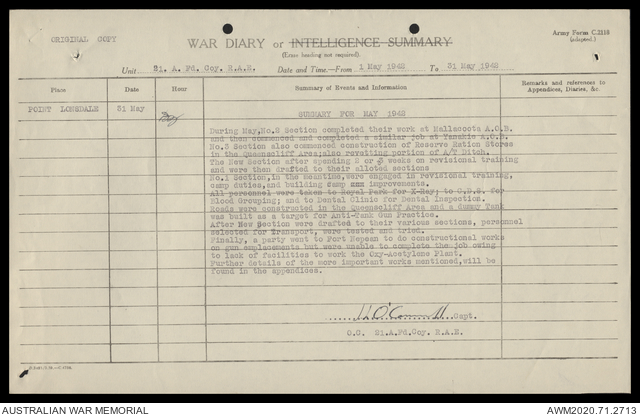 ORIGINAL COPY
Army Form C.2118
(adapted.)
WAR DIARY or INTELLIGENCE SUMMARY
(Erase heading not required).
Unit 21. A. Fd. Coy. R.A.E. Date and Time.—From 1 May 1942 To 31 May 1942
Place Date Hour Summary of Events and Information Remarks and references to Appendices, Diaries, &c.
POINT LONSDALE 31 May SUMMARY FOR MAY 1942
During May, No.2 Section completed their work at Mallacoota A.O.B.
and then commenced and completed a similar job at Yanakie A.O.B.
No.3 Section also commenced construction of Reserve Ration Stores
in the Queenscliff Area; also revetting portion of A/T Ditch.
The New Section after spending 2 or 3 weeks on revisional training
and were then drafted to their alloted sections
No.1 Section, in the meantime, were engaged in revisional training,
camp duties, and building camp improvements.
All personnel were taken to Royal Park for X-Ray; to C.B.S. for
Blood Grouping; and to Dental Clinic for Dental Inspection.
Roads were constructed in the Queenscliff Area and a dummy Tank
was built as a target for Anti-Tank Gun Practice.
After New Section were drafted to their various sections, personnel
selected for Transport, were tested and tried.
Finally, a party went to Fort Nepean to do constructional works
on gun emplacements but were unable to complete the job owing
to lack of facilities to work the Oxy-Acetylene Plant.
Further details of the more important works mentioned, will be
found in the appendices.
Capt.
O.C. 21.A.Fd.Coy. R.A.E.
AUSTRALIAN WAR MEMORIAL
AWM2020.71.2713